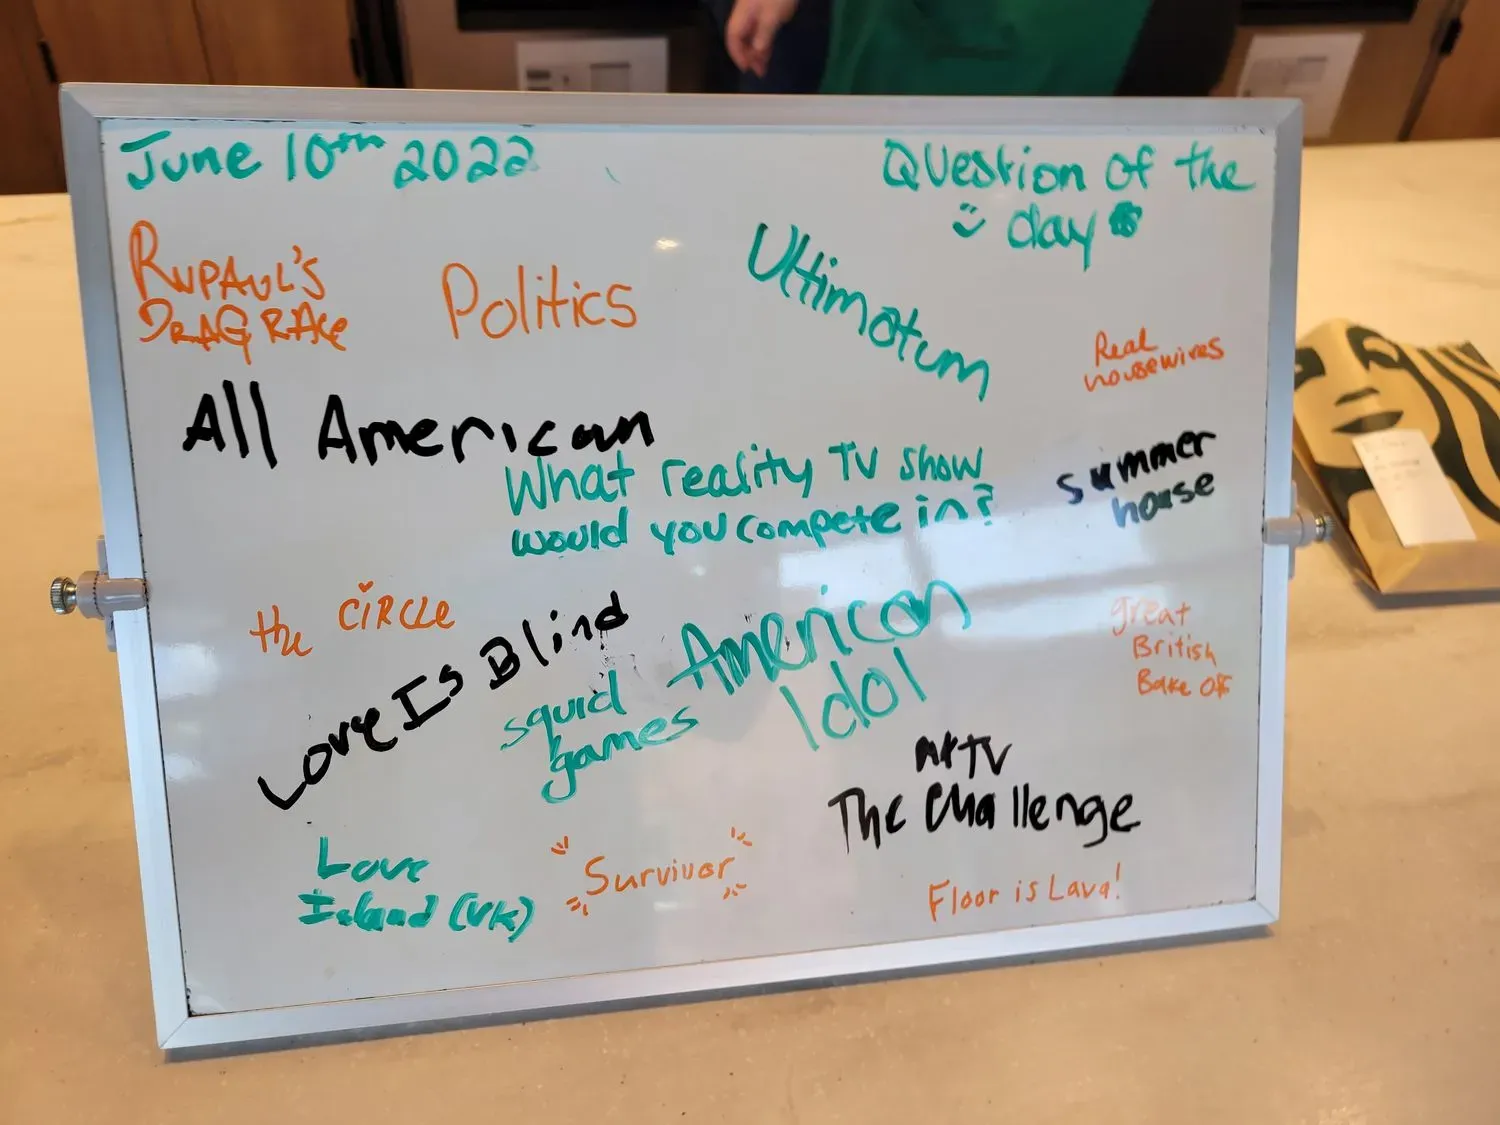 June 10th 2022
Question of the
day
RUPAUL'S
DRAG RACE
Politics
Ultimatum
Real
housewives
All American
What reality TV show
would you compete in?
summer
house
the CiRCLE
Love Is Blind
squid
games
American
Idol
great
British
Bake Off
MTV
The Challenge
Love
Island (UK)
Survivor
Floor is Lava!